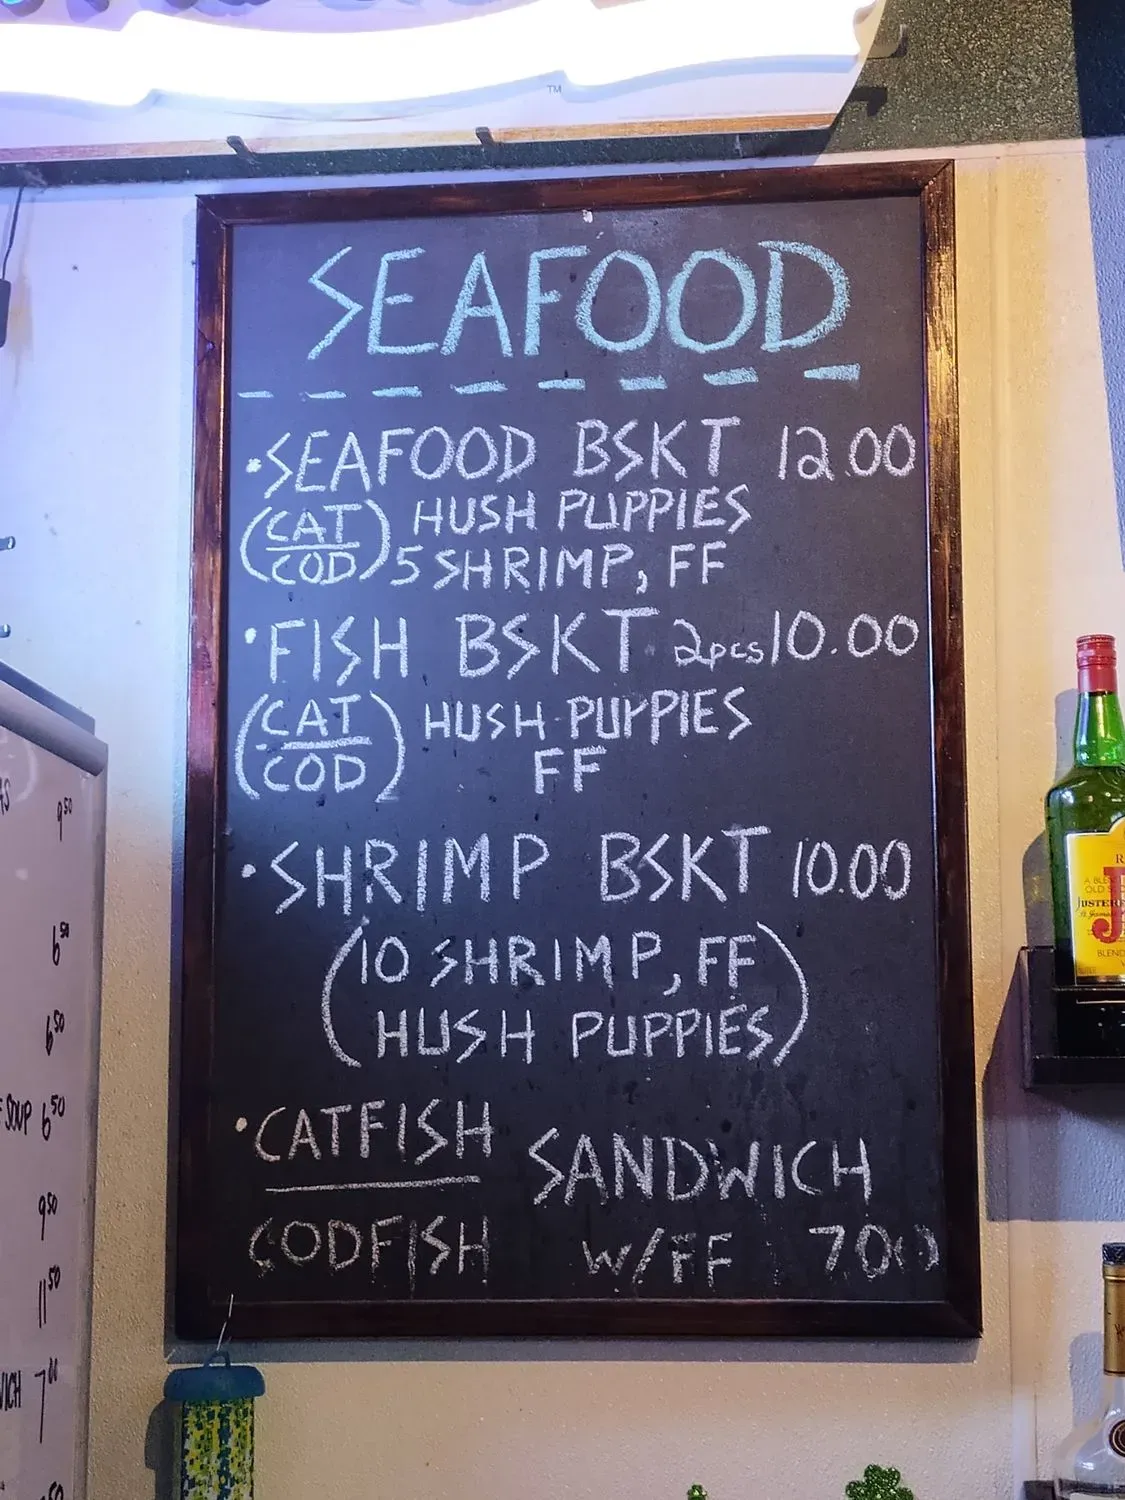 ™
SEAFOOD
• SEAFOOD BSKT 12.00
(CAT/COD) HUSH PUPPIES
5 SHRIMP, FF
• FISH BSKT 2pcs 10.00
(CAT/COD) HUSH PUPPIES
FF
• SHRIMP BSKT 10.00
(10 SHRIMP, FF
HUSH PUPPIES)
• CATFISH SANDWICH
CODFISH W/FF 700
9.50
6.50
6.50
SOUP 6.50
9.50
11.50
7.00
A BLE
OLD S
JUSTER
J
BLEND